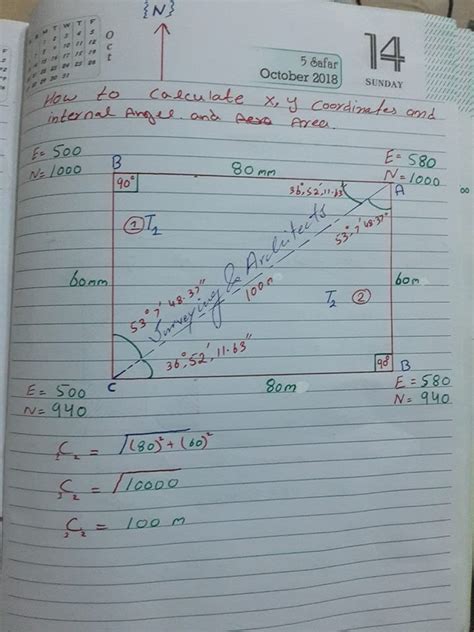 {N}
5 Safar
October 2018
14
SUNDAY
Oct
How to calculate x, y coordinates and
internal Angel and Area.
E= 500
N= 1000
B
80mm
E= 580
N= 1000
A
90°
36°, 52', 11.63"
53°, 7' 48.37"
① T₂
Surveying & Architects
100m
60mm
60m
T₂ ②
53° 7' 48.37"
36°, 52', 11.63"
90°
B
C
80m
E= 500
N= 940
E= 580
N= 940
C₂ = √(80)²+(60)²
C₂ = √10000
C₂ = 100 m